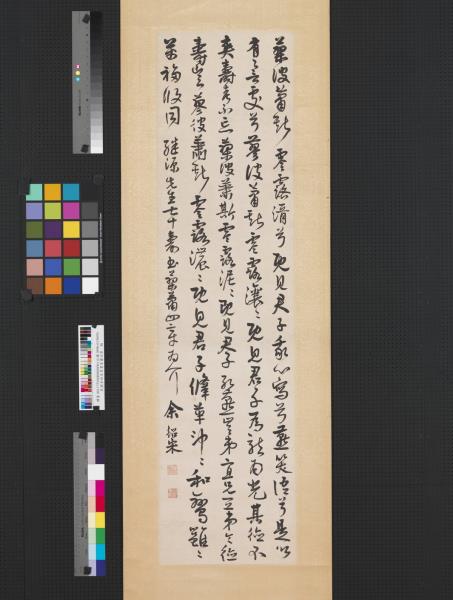 蓼彼蕭斯零露湑兮既見君子我心寫兮燕笑語兮是以
有譽處兮蓼彼蕭斯零露瀼〻既見君子為龍為光其德不
爽壽考不忘蓼彼蕭斯零露泥〻既見君子孔燕豈弟宜兄宜弟令德
壽豈蓼彼蕭斯零露濃〻既見君子鞗革沖〻和鸞雝〻
萬福攸同 繼源先生七十壽書蓼蕭四章為介 余紹宋